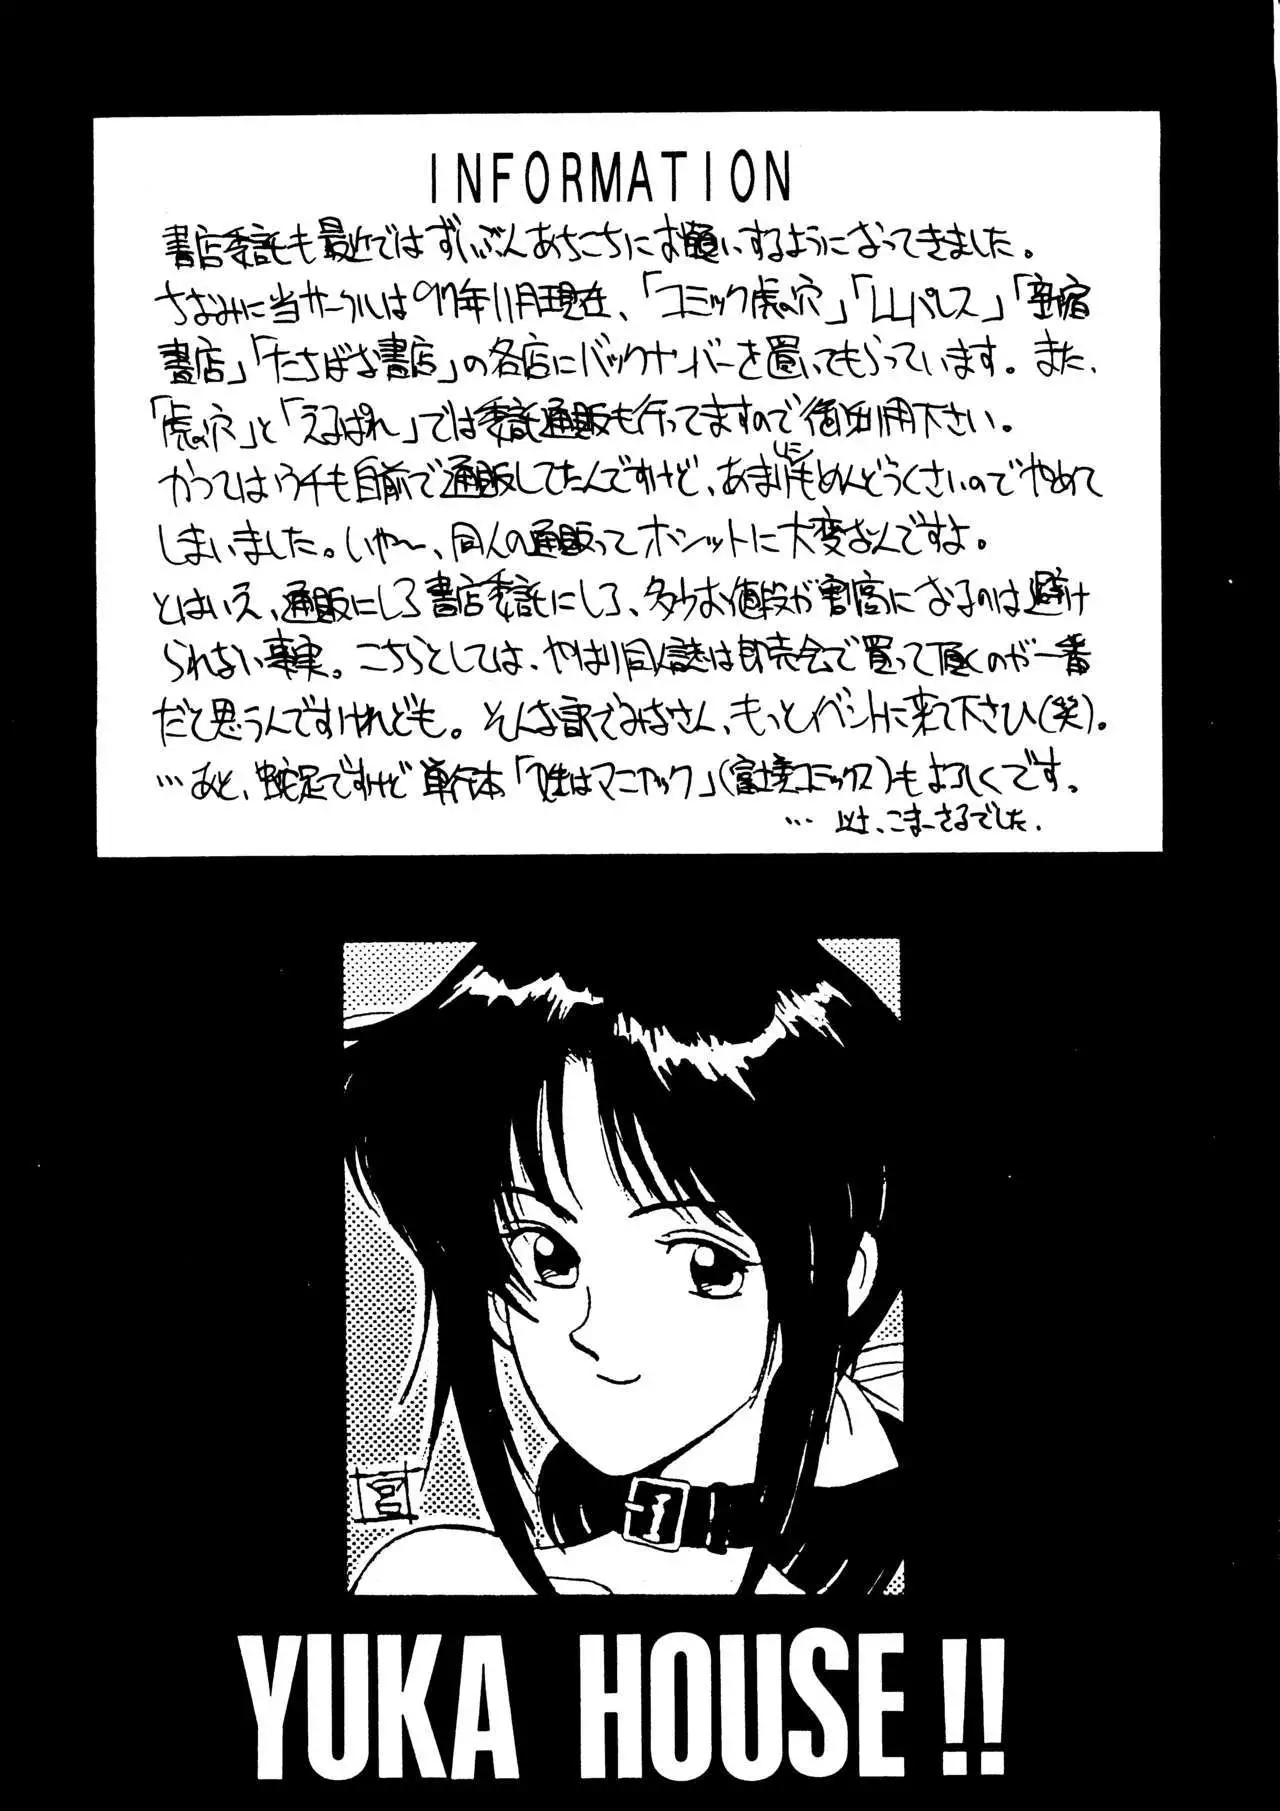 INFORMATION
書店委託も最近ではずいぶんあちこちにお願いするようになってきました。
ちなみに当サークルは97年11月現在、「コミック虎の穴」「LLパレス」「宿
書店」「たちばな書店」の各店にバックナンバーを置いてもらっています。また、
「虎の穴」と「えるぱれ」では委託通販も行ってますので御利用下さい。
かつてはウチも自前で通販してたんですけど、あまりにもめんどうくさいのでやめて
しまいました。いや〜、同人の通販ってホンットに大変なんですよ。
とはいえ、通販にしろ書店委託にしろ、多少お値段が割高になるのは避け
られない事実。こちらとしては、やはり同人誌は即売会で買って頂くのが一番
だと思うんですけれども。そんな訳でみなさん、もっとイベントに来て下さひ(笑)。
…あと、蛇足ですけど単行本「性はマニアック」(富士美コミックス)もよろしくです。
… 以上、こまーさるでした.
宮
YUKA HOUSE!!